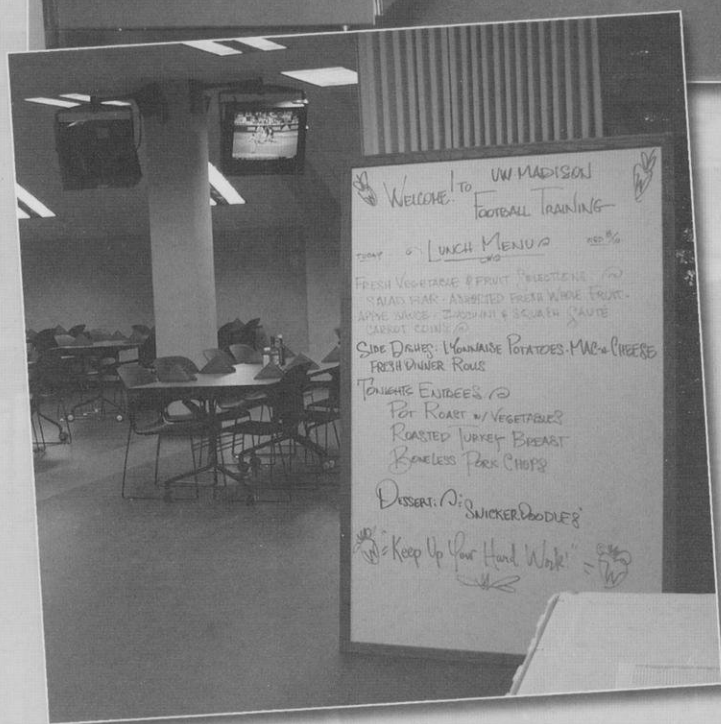 WELCOME! TO UW-MADISON
FOOTBALL TRAINING
TODAY LUNCH MENU
FRESH VEGETABLE & FRUIT SELECTIONS:
SALAD BAR - ASSORTED FRESH WHOLE FRUIT -
APPLE SAUCE - ZUCCHINI & SQUASH SAUTÉ
CARROT COINS
SIDE DISHES: LYONNAISE POTATOES - MAC-N-CHEESE
FRESH DINNER ROLLS
TONIGHTS ENTREES
POT ROAST W/ VEGETABLES
ROASTED TURKEY BREAST
BONELESS PORK CHOPS
DESSERT: SNICKERDOODLES
"Keep Up Your Hard Work!"